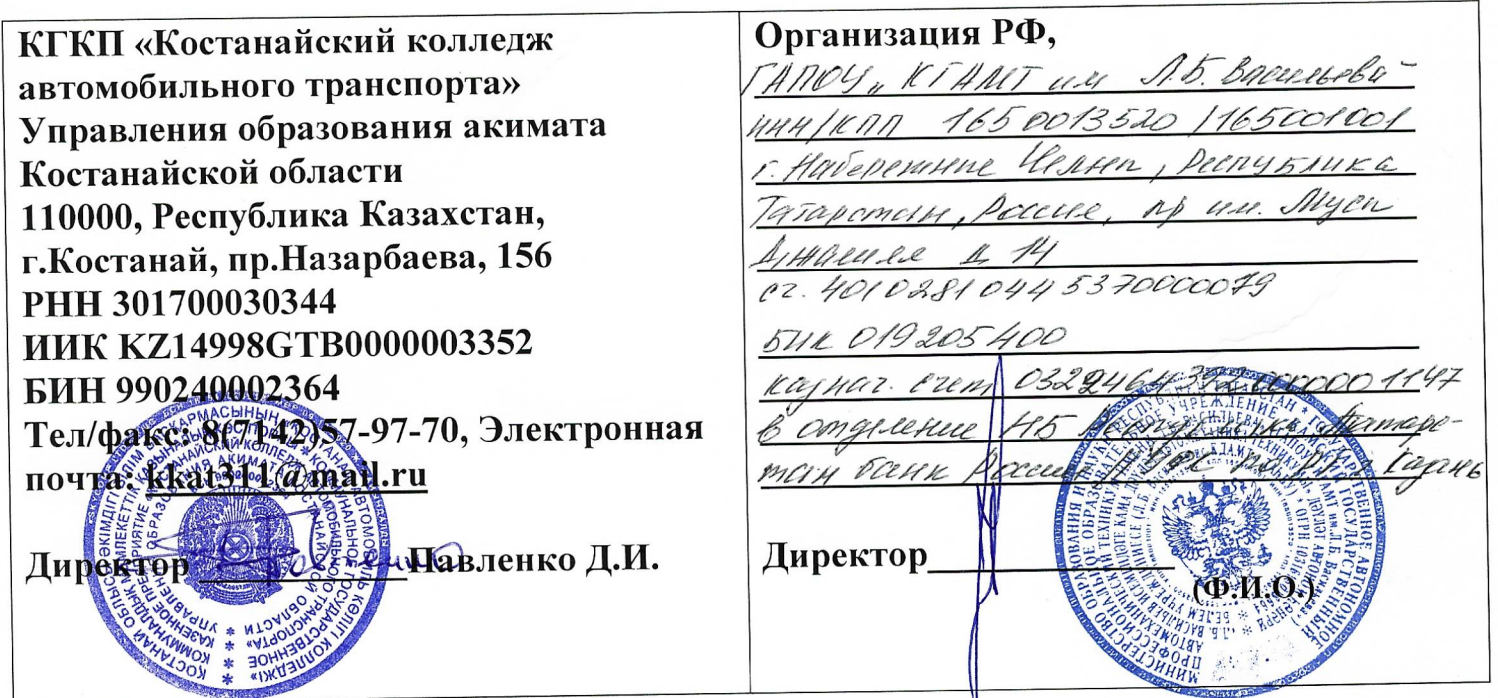 КГКП «Костанайский колледж
автомобильного транспорта»
Управления образования акимата
Костанайской области
110000, Республика Казахстан,
г.Костанай, пр.Назарбаева, 156
РНН 301700030344
ИИК KZ14998GTB0000003352
БИН 990240002364
Тел/факс: 8(7142)57-97-70, Электронная
почта: kkat311@mail.ru
Директор Павленко Д.И.
Организация РФ,
ГАПОУ „КГАМТ им Л.Б. Васильева"
ИНН/КПП 1650013520/165001001
г. Набережные Челны, Республика
Татарстан, Россия, пр им. Мусы
Джалиля д 14
сч. 40102810445370000079
БИК 019205400
казнач. счет
в отделение НБ
банк России по РТ г Казань
Директор
(Ф.И.О.)